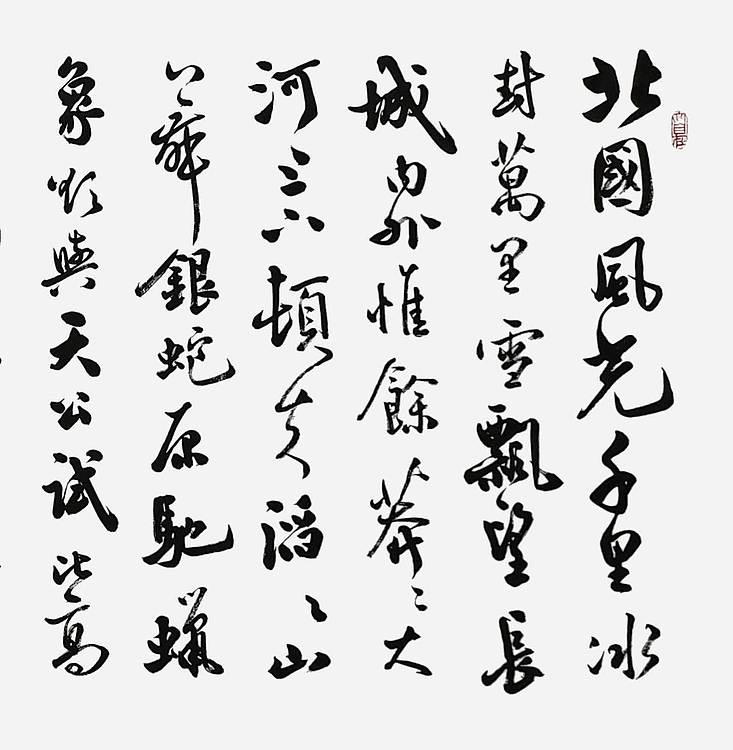 北國風光千里冰
封萬里雪飄望長
城内外惟餘莽〻大
河上下頓失滔〻山
舞銀蛇原馳蠟
象欲與天公試比高